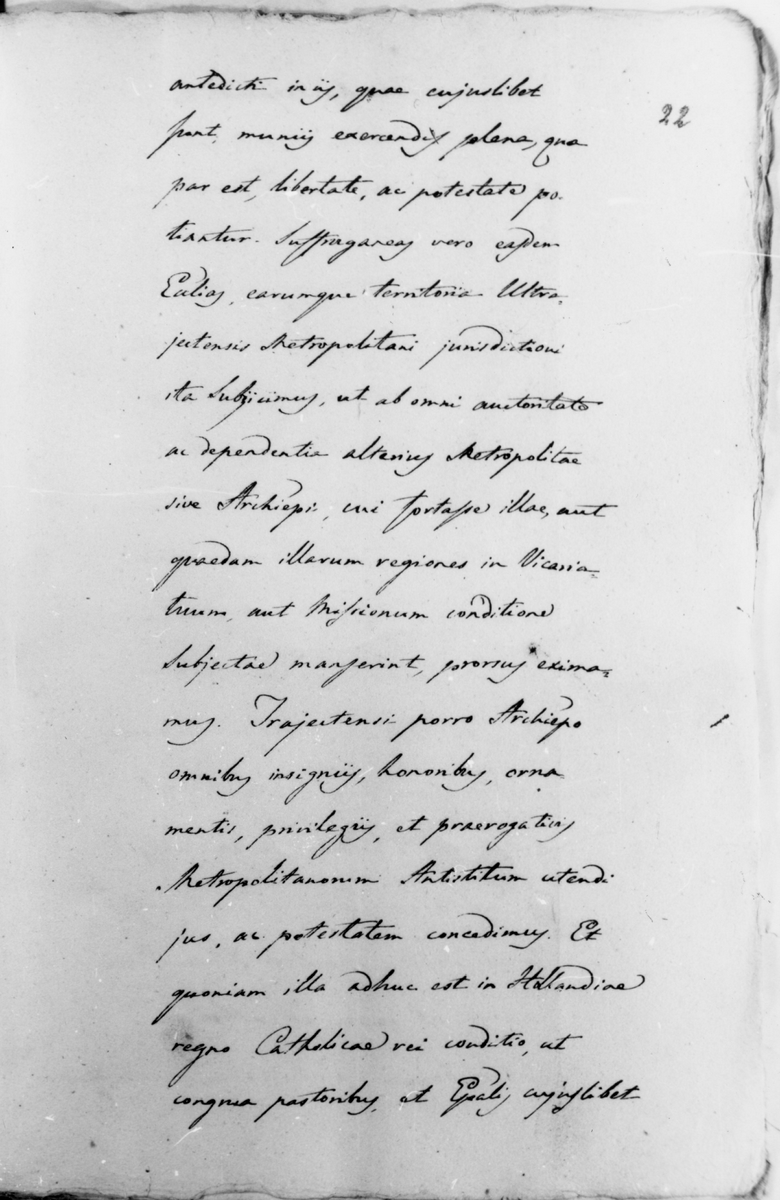 antedicti in iis, quae cujuslibet
22
sunt, muniis exercendis plena, qua
par est, libertate, ac potestate po-
tiantur. Suffraganeas vero easdem
Ecclias, earumque territoria Ultra-
jectensis Metropolitani jurisdictioni
ita Subjicimus, ut ab omni auctoritate
ac dependentia alterius Metropolitae
sive Archiepi, cui fortasse illae, aut
quaedam illarum regiones in Vicaria-
tuum, aut Missionum conditione
Subjectae manserint, prorsus exima-
mus. Trajectensi porro Archiepo
omnibus insigniis, honoribus, orna
mentis, privilegiis, et praerogativis
Metropolitanorum Antistitum utendi
jus, ac potestatem concedimus. Et
quoniam illa adhuc est in Hollandiae
regno Catholicae rei conditio, ut
congrua pastoribus, et Epalis cujuslibet